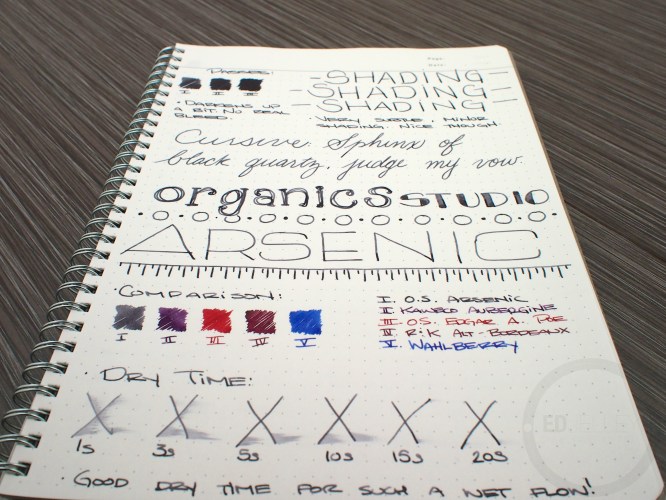 Passes:
I II III
-SHADING-
-SHADING-
-SHADING-
· Darkens up
a bit. No real
bleed.
· Very subtle, minor
shading. Nice though.
Cursive: Sphinx of
black quartz, judge my vow.
organics STUDIO
ARSENIC
· Comparison:
I II III IV V
I. O.S. Arsenic
II. Kaweco Aubergine
III. O.S. Edgar A. Poe
IV R+K Alt-Bordeaux
V. Wahlberry
· Dry Time:
X X X X X X
1s 3s 5s 10s 15s 20s
· Good dry time for such a wet flow!